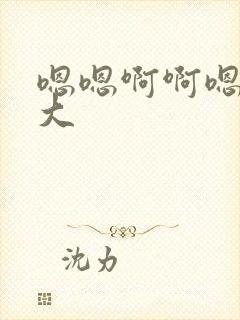 嗯嗯啊啊嗯
大
沈力